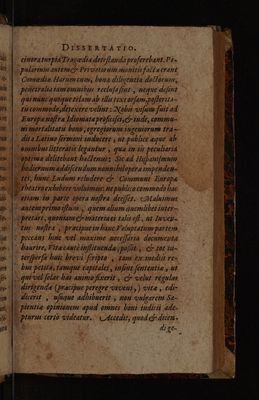 DISSERTATIO.
cinera turpia Tragœdiæ detestanda proferebant. Po-
pularium autem & Privatiorum monitis facta erant
Comœdiæ. Harum cum, bona diligentia doctorum,
penetralia iam omnibus reclusa sint, neque desint
qui nunc quoque telam ab illis texi orsam, posterita-
ti commode, detexere velint: Nobis visum fuit ad
Europæ nostræ Idiomata proficisci, & inde, commu-
ni mortalitatis bono, egregiorum ingeniorum tra-
dita Latino sermoni inducere, ut publica aqua ab
omnibus litteratis legantur, quæ in iis peculiaria
optima delitebant hactenus. Sic ad Hispanismum
hodiernum addiscendum nonnihil opera impenden-
tes, hunc Ludum reludere & Communi Europæ
theatro exhibere voluimus: ne publica commoda hac
etiam in parte opera nostra deesset. Maluimus
autem primo istum, quem alium quemlibet inter-
pretari, quoniam & materia ei talis est, ut Juven-
tus nostra, præcipue in hanc Voluptatum partem
peccans hinc vel maxime necessaria documenta
haurire, Vita caute instituenda, possit, & tot in-
terspersæ huic brevi scripto, tam ex mediis re-
bus petitæ, tamque capitales, insint sententiæ, ut
qui vel solas has animo fixerit, & velut regulas
dirigendæ (præcipue peregre veteri,) vitæ, edi-
dicerit, usque adhibuerit, non vulgarem Sa-
pientiæ opinionem apud omnes boni iudicii ade-
pturus certo videatur. Accedit, quod & dicen-
di ge-